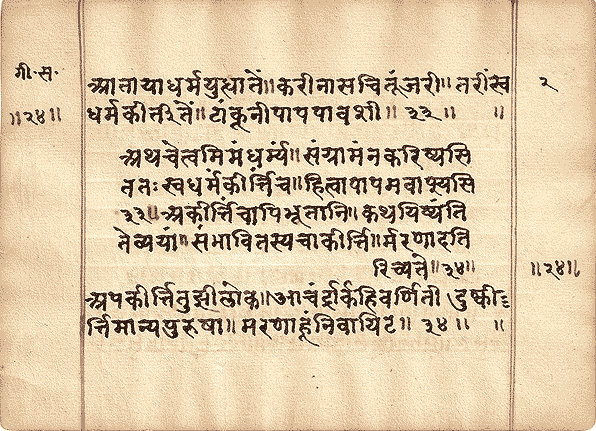 गी॰स॰
॥२४॥
२
आताया धर्मयुद्धातें॥ करीनासचि तूं जरी॥ तरी स्व
धर्म कीर्त्तीतें॥ टांकूनी पाप पावशी॥ ३३॥ ॥
अथ चेत्त्वमिमं धर्म्यं॥ संग्रामं न करिष्यसि
ततः स्वधर्मं कीर्त्तिं च॥ हित्वा पापमवाप्स्यसि
३३॥ अकीर्त्तिं चापि भूतानि॥ कथयिष्यंति
तेव्ययां॥ संभावितस्य चाकीर्त्ति॥ र्मरणादति
रिच्यते॥ ३४॥
॥२४॥
अपकीर्त्ति तुझी लोक॥ आचंद्रार्कहि वर्णिती दुष्की
र्त्ति मान्य पुरुषा॥ मरणाहूंनि वायिट॥ ३४॥ ॥